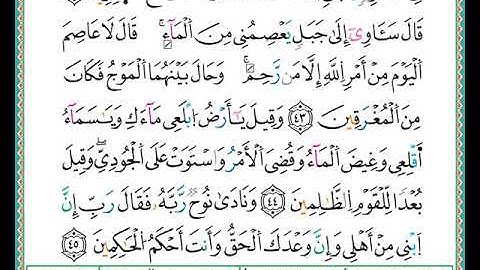 قَالَ سَـَٔاوِىٓ إِلَىٰ جَبَلٍ يَعْصِمُنِى مِنَ ٱلْمَآءِ ۚ قَالَ لَا عَاصِمَ
ٱلْيَوْمَ مِنْ أَمْرِ ٱللَّهِ إِلَّا مَن رَّحِمَ ۚ وَحَالَ بَيْنَهُمَا ٱلْمَوْجُ فَكَانَ
مِنَ ٱلْمُغْرَقِينَ ٤٣ وَقِيلَ يَـٰٓأَرْضُ ٱبْلَعِى مَآءَكِ وَيَـٰسَمَآءُ
أَقْلِعِى وَغِيضَ ٱلْمَآءُ وَقُضِىَ ٱلْأَمْرُ وَٱسْتَوَتْ عَلَى ٱلْجُودِىِّ ۖ وَقِيلَ
بُعْدًا لِّلْقَوْمِ ٱلظَّـٰلِمِينَ ٤٤ وَنَادَىٰ نُوحٌ رَّبَّهُۥ فَقَالَ رَبِّ إِنَّ
ٱبْنِى مِنْ أَهْلِى وَإِنَّ وَعْدَكَ ٱلْحَقُّ وَأَنتَ أَحْكَمُ ٱلْحَـٰكِمِينَ ٤٥